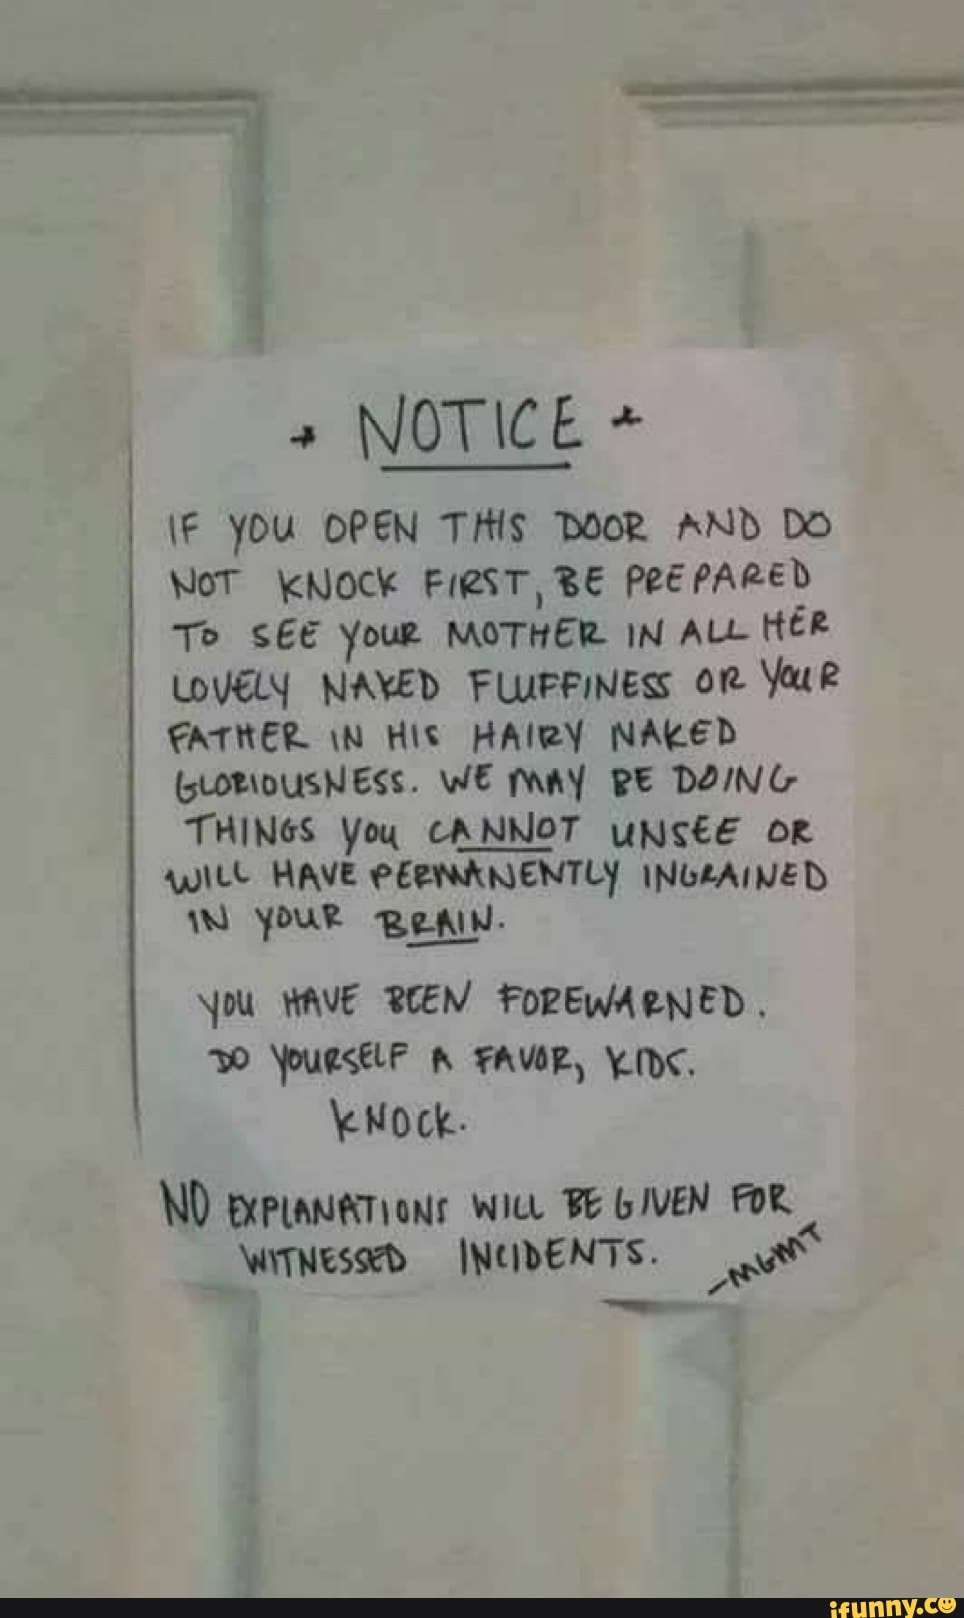 * NOTICE *
IF YOU OPEN THIS DOOR AND DO
NOT KNOCK FIRST, BE PREPARED
TO SEE YOUR MOTHER IN ALL HER
LOVELY NAKED FLUFFINESS OR YOUR
FATHER IN HIS HAIRY NAKED
GLORIOUSNESS. WE MAY BE DOING
THINGS YOU CANNOT UNSEE OR
WILL HAVE PERMANENTLY INGRAINED
IN YOUR BRAIN.
YOU HAVE BEEN FOREWARNED.
DO YOURSELF A FAVOR, KIDS.
KNOCK.
NO EXPLANATIONS WILL BE GIVEN FOR
WITNESSED INCIDENTS.
-MGMT
ifunny.co